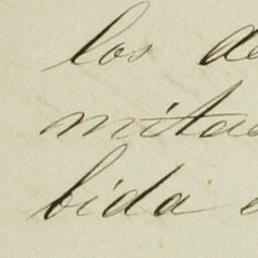 los de
mitad
bida